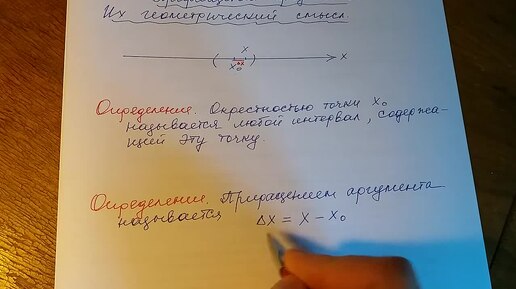 Их геометрический смысл
x
x
Δx
x₀
Определение. Окрестностью точки x₀
называется любой интервал, содержа-
щий эту точку.
Определение. Приращением аргумента
называется Δx = x − x₀